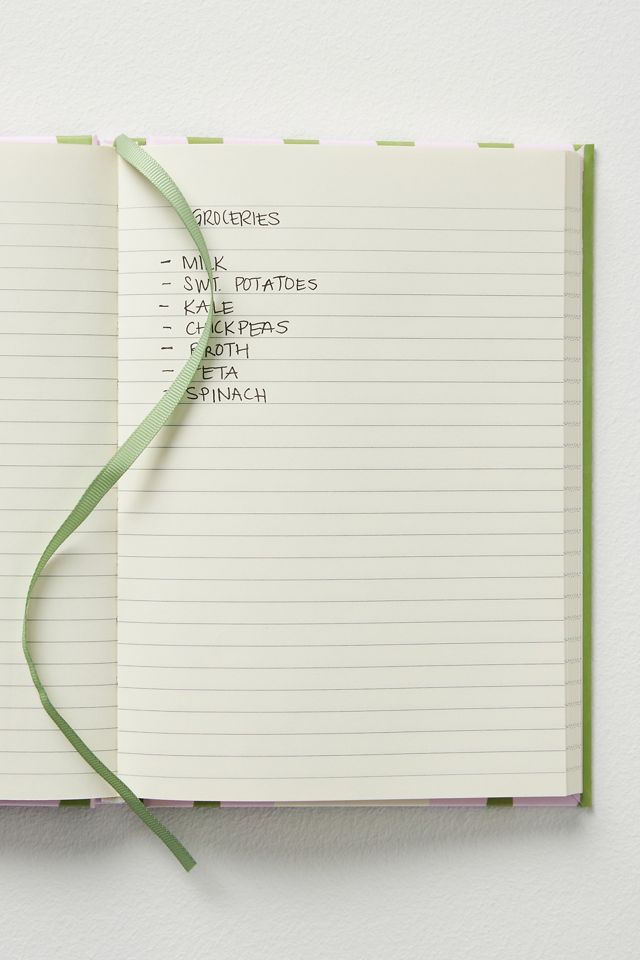 GROCERIES
- MILK
- SWT. POTATOES
- KALE
- CHICKPEAS
- BROTH
- FETA
- SPINACH